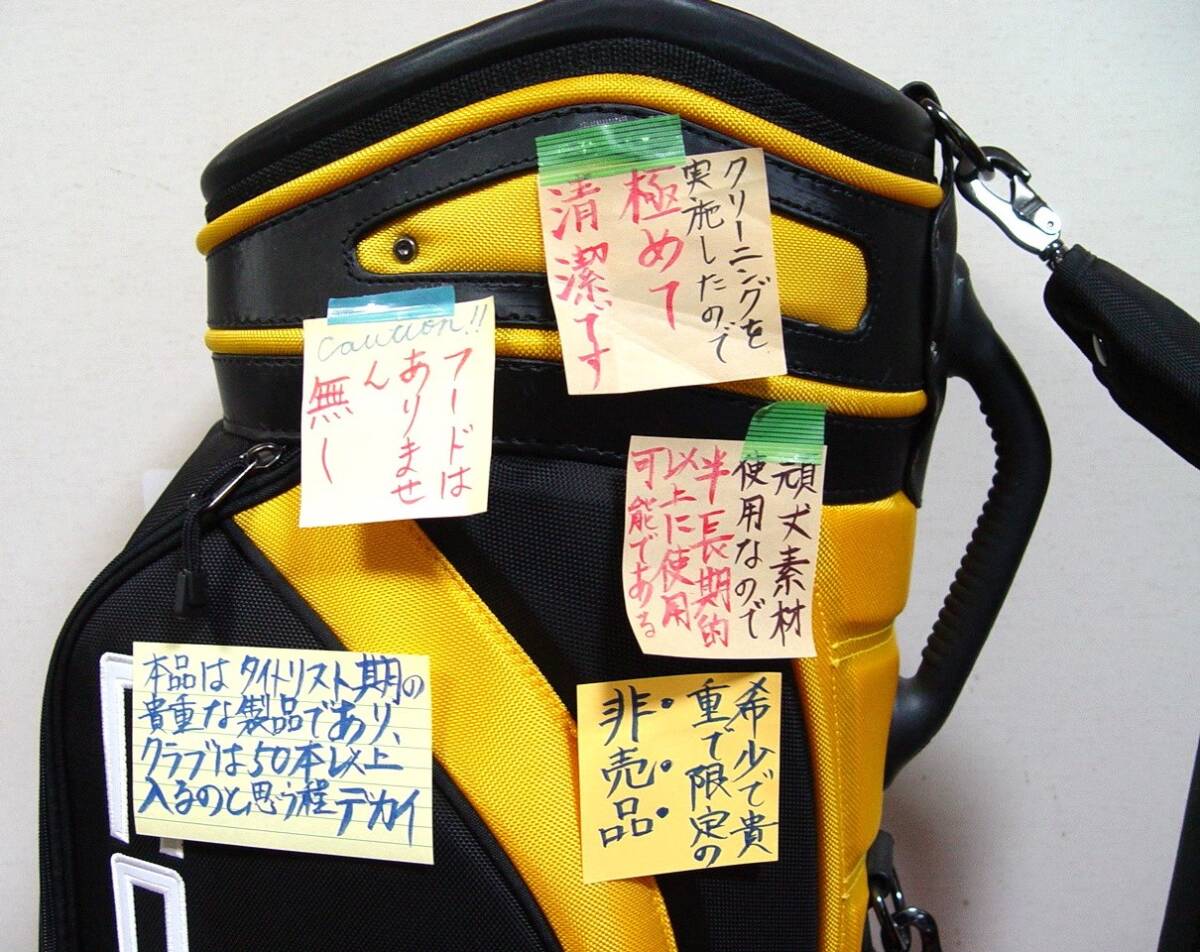 クリーニングを
実施したので
極めて
清潔です
Caution!!
フードは
ありませ
ん
無し
頑丈素材
使用なので
半長期的
以上に使用
可能である
本品はタイトリスト期の
貴重な製品であり、
クラブは50本以上
入るのと思う程デカイ
希少で貴
重で限定の
非売品